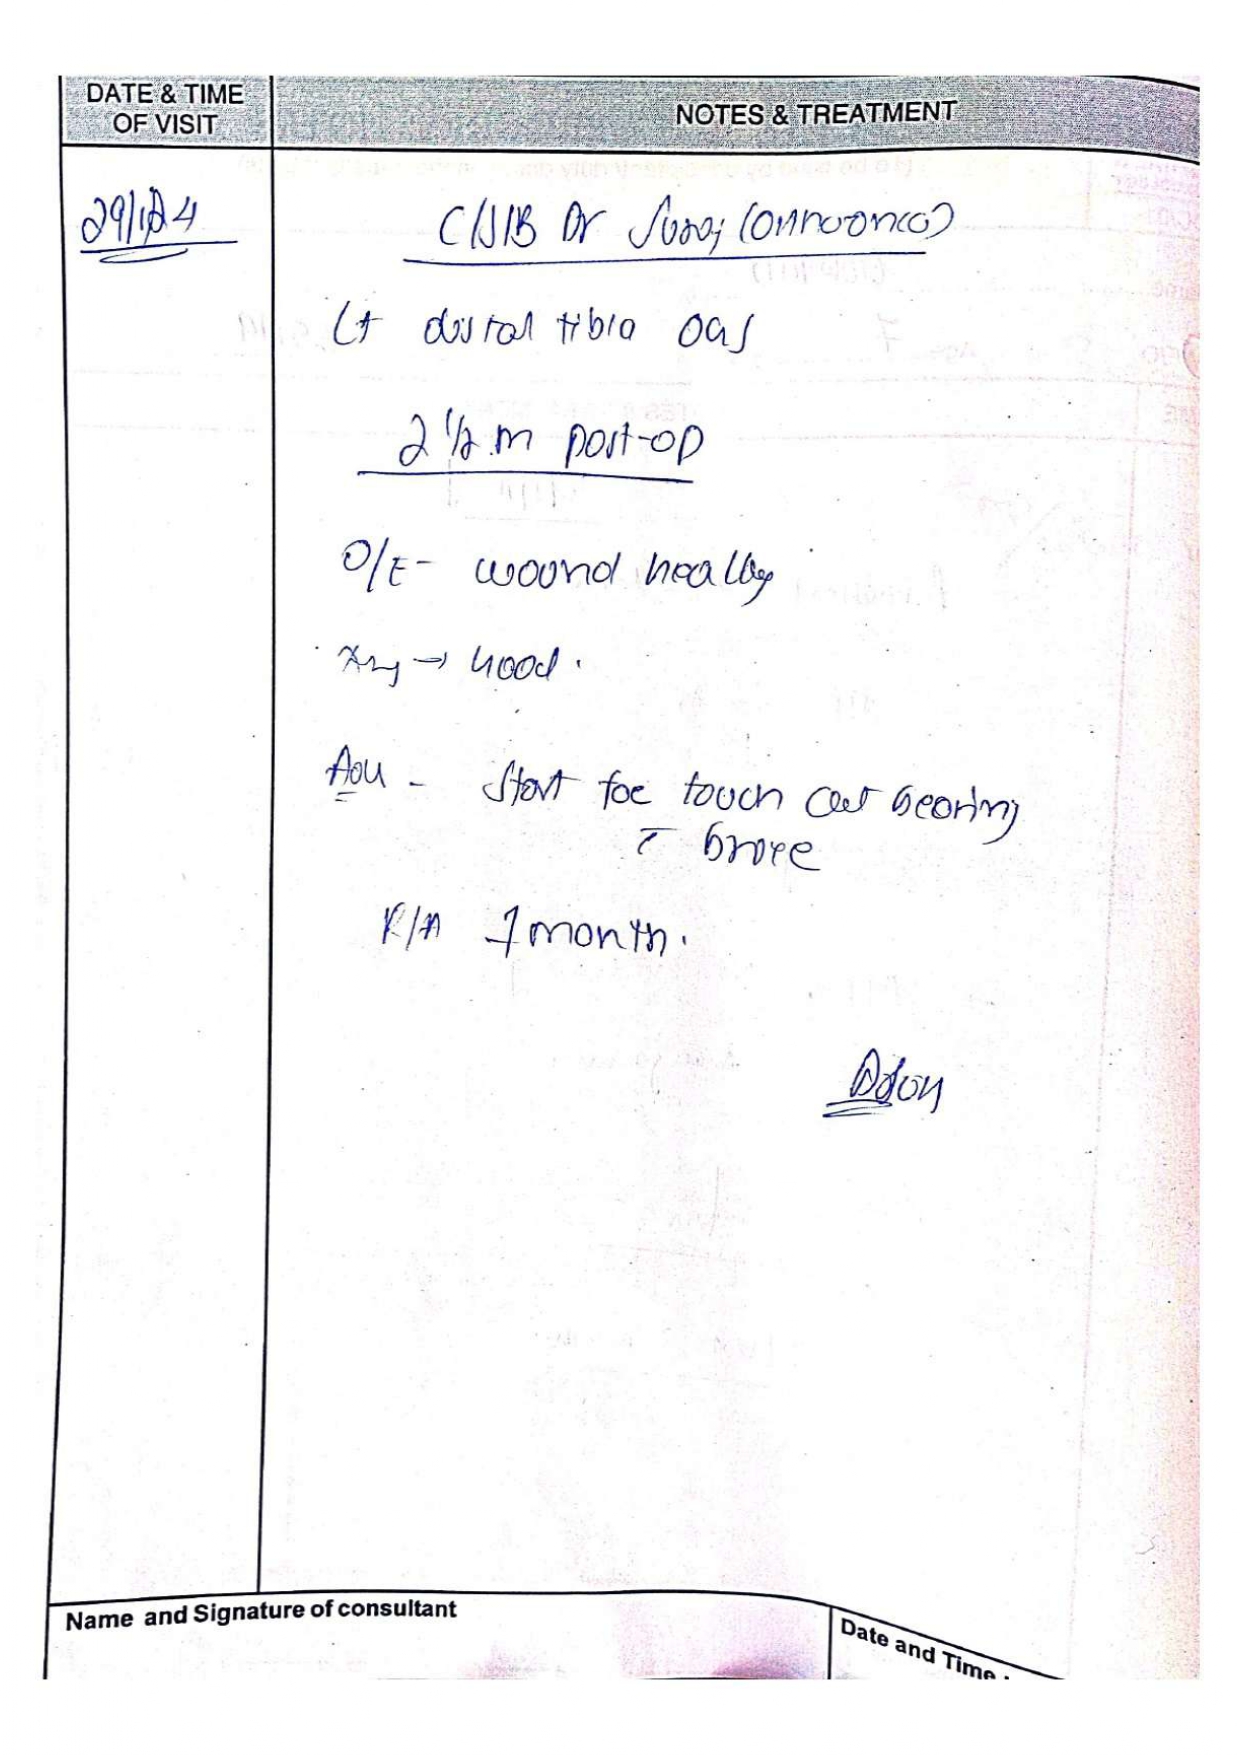 DATE & TIME
OF VISIT
NOTES & TREATMENT
29/12/24
C/S/B Dr Suraj (Orthoonco)
Lt distal tibia OGS
2 1/2 m post-op
O/E - wound healthy
Xray → Good.
Adv - Start toe touch wt bearing
c̄ brace
R/A 1 month.
Name and Signature of consultant
Date and Time